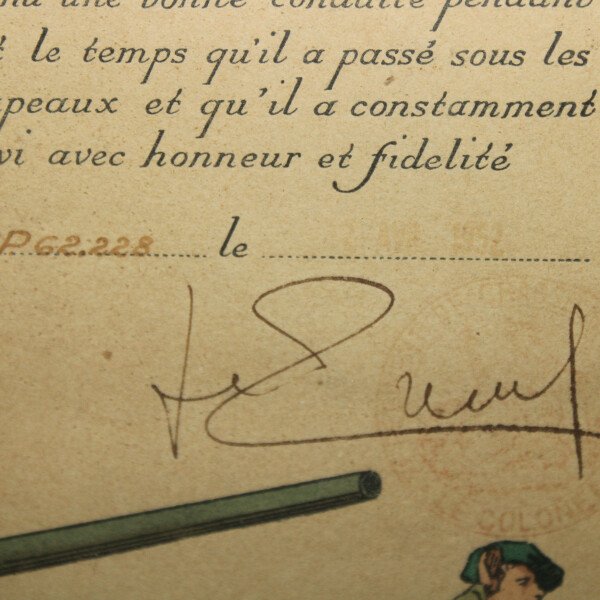 une bonne conduite pendant
le temps qu'il a passé sous les
peaux et qu'il a constamment
vi avec honneur et fidelité
P62.228 le
LE COLONEL